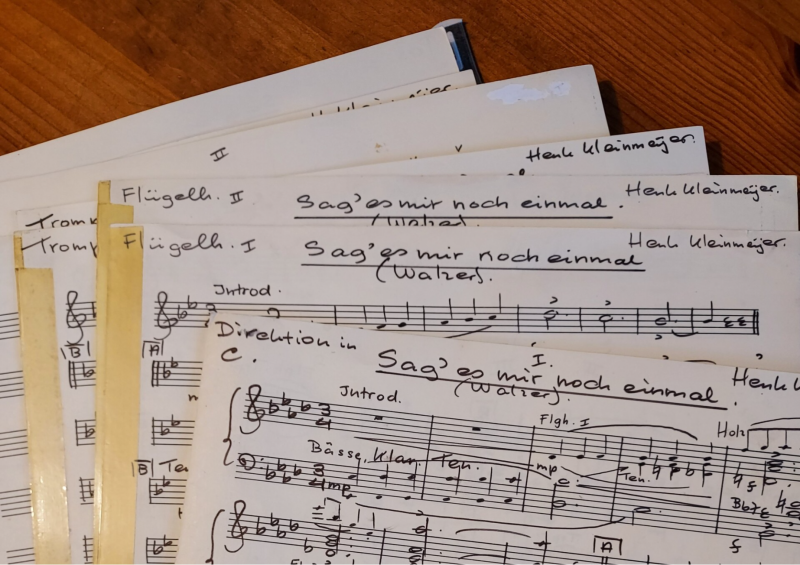 II
Henk Kleinmeijer.
Flügelh. II
Sag' es mir noch einmal.
Henk Kleinmeijer.
(Walzer)
Flügelh. I
Sag' es mir noch einmal
Henk Kleinmeijer.
(Walzer).
Introd.
B
A
B
Direktion in
C.
I.
Sag' es mir noch einmal.
(Walzer)
Henk
Introd.
Flgh. I
Holz
3
4
Bässe, Klar. Ten.
3
4
mp
mp
Ten.
f
Bb7
f
A